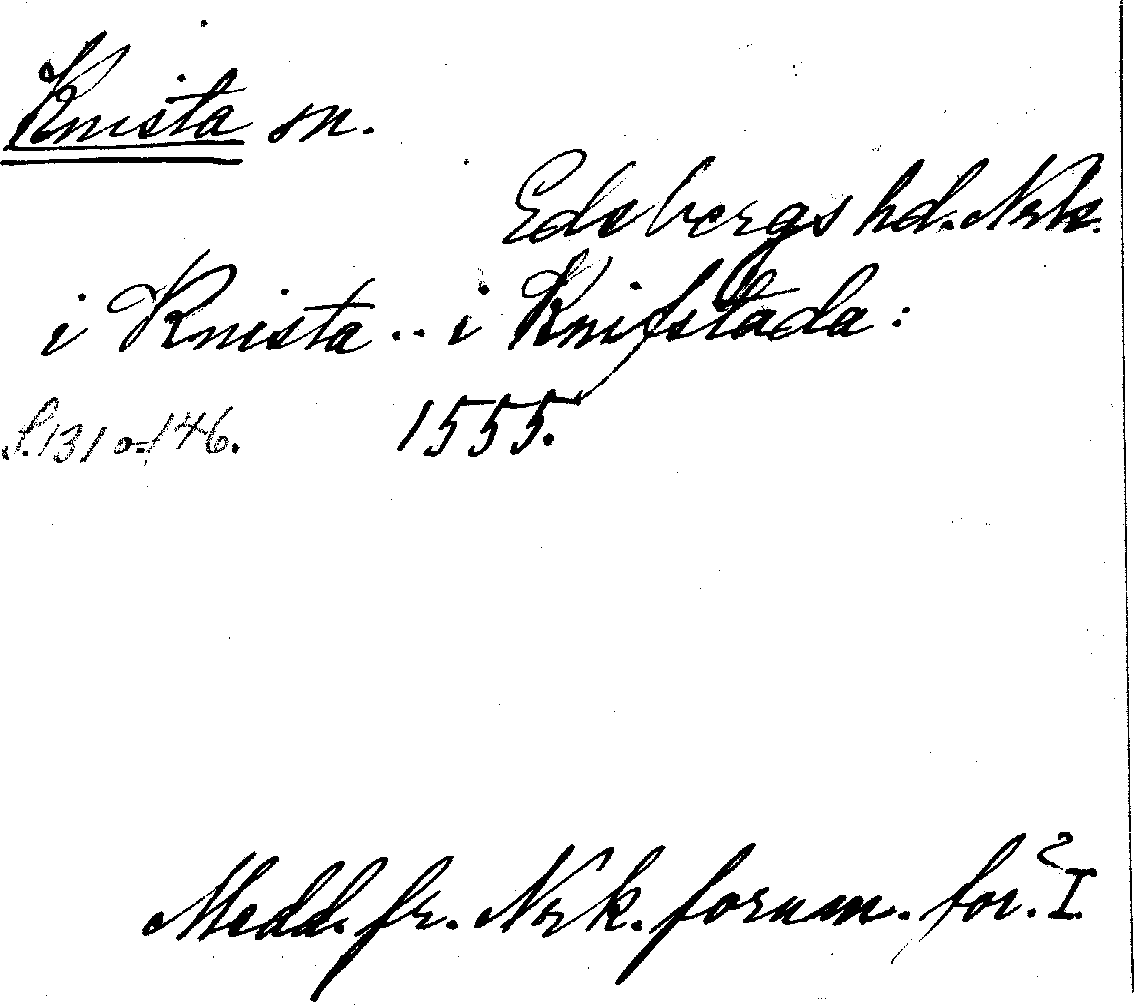 Knista sn.
Edsbergs hd. Nrk.
i Knista .. i Knifstada :
S. 131 o. 146. 1555.
Medd. fr. Nrk. fornm. för. I